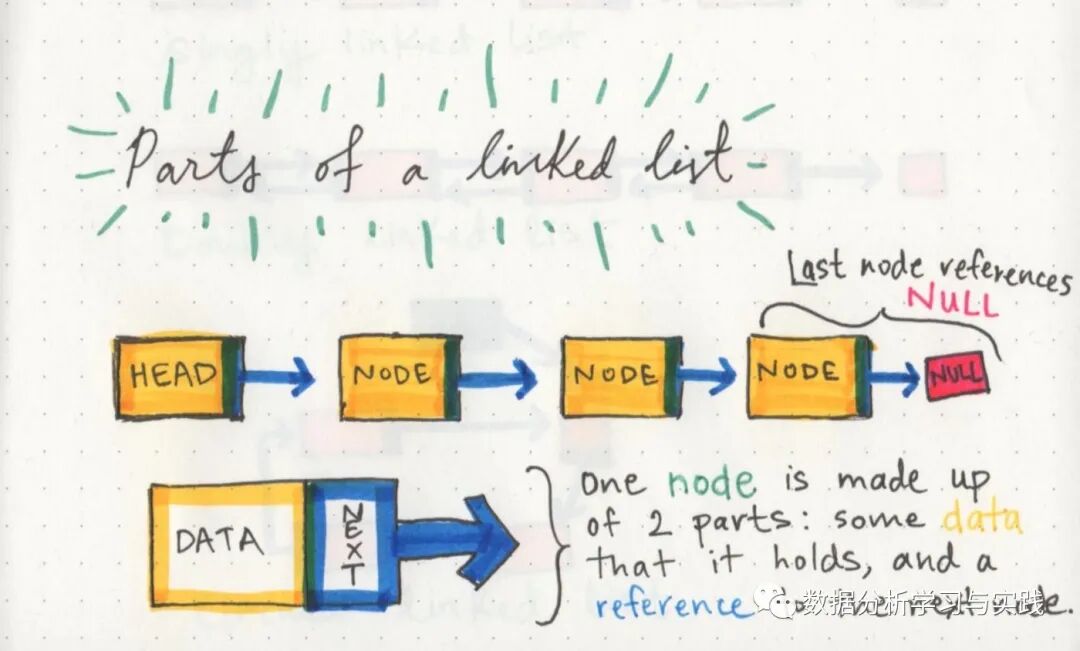 Parts of a linked list
Last node references
NULL
HEAD
NODE
NODE
NODE
NULL
DATA
NEXT
one node is made up
of 2 parts: some data
that it holds, and a
reference
数据分析学习与实践